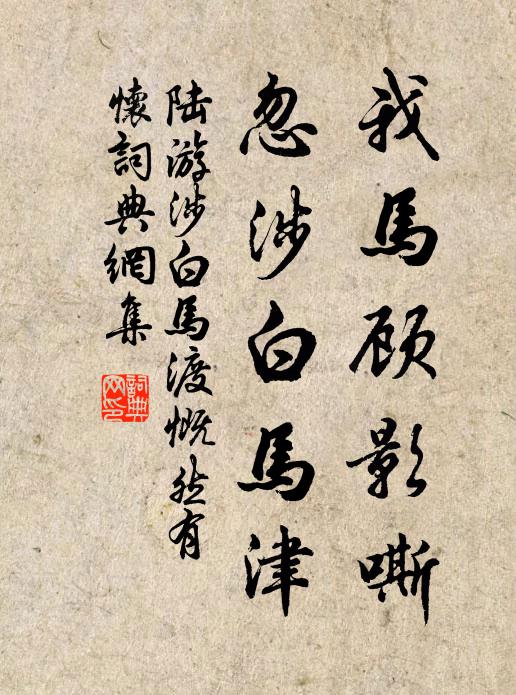 我馬顧影嘶
忽涉白馬津
陸游涉白馬渡慨然有
懷詞典網集
詞典
网印